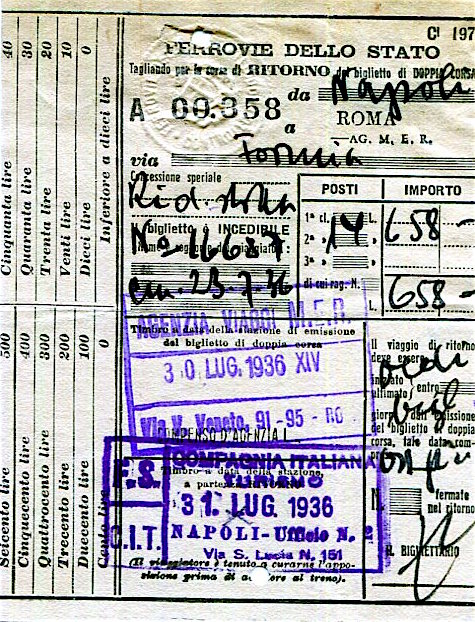 Cı 197
FERROVIE DELLO STATO
Tagliando per la corsa di RITORNO del biglietto di DOPPIA CORSA
A 00.358
da Napoli
ROMA
AG. M. E. R.
a
via Formia
Concessione speciale
biglietto INCEDIBILE
POSTI IMPORTO
1ª cl. 14 L. 658 -
2ª »
3ª »
di cui rag. N.
L. 658 -
AGENZIA VIAGGI M.E.R.
Timbro a data della stazione di emissione
del biglietto di doppia corsa
30 LUG. 1936 XIV
Via V. Veneto, 91-95 - RO
COMPENSO D'AGENZIA L.
F.S.
C.I.T.
COMPAGNIA ITALIANA
TURISMO
Timbro a data della stazione
31 LUG 1936
NAPOLI - Ufficio N. 2
Via S. Lucia N. 151
(Il viaggiatore è tenuto a curarne l'appo-
sizione prima di accedere al treno).
Il viaggio di ritorno
deve essere
ultimato entro
giorni dall'emissione
del biglietto di doppia
corsa, tale data com-
N. fermate
nel ritorno
IL BIGLIETTARIO
Cinquanta lire 40
Quaranta lire 30
Trenta lire 20
Venti lire 10
Dieci lire 0
Inferiore a dieci lire
Seicento lire 500
Cinquecento lire 400
Quattrocento lire 300
Trecento lire 200
Duecento lire 100
Cento lire 0